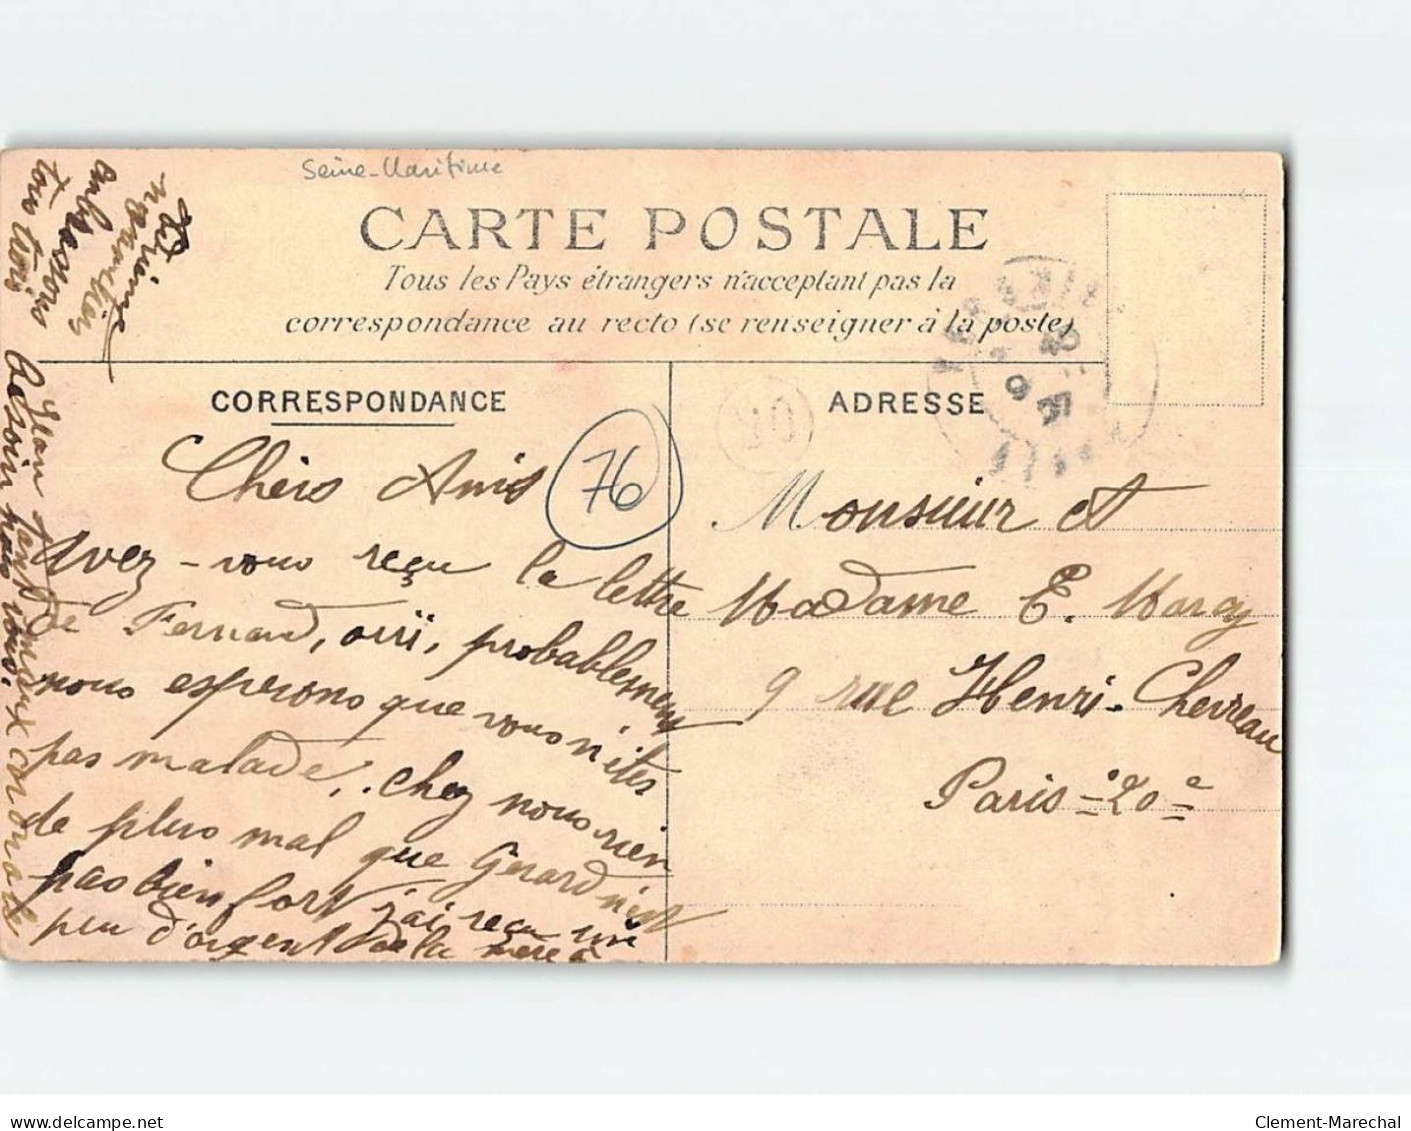 Seine-Maritime
CARTE POSTALE
Tous les Pays étrangers n'acceptant pas la
correspondance au recto (se renseigner à la poste)
CORRESPONDANCE
Chers Amis
76
Avez-vous reçu la lettre
de Fernand, oui, probablement
nous esperons que vous n'êtes
pas malade, chez nous rien
de plus mal que Gerard n'est
pas bien fort j'ai reçu un
peu d'argent de la mère à
Jean
tous trois
embrassons
ADRESSE
Monsieur et
Madame E. Marcy
9 rue Henri-Chevreau
Paris-20e
delcampe.net
Clement-Marechal